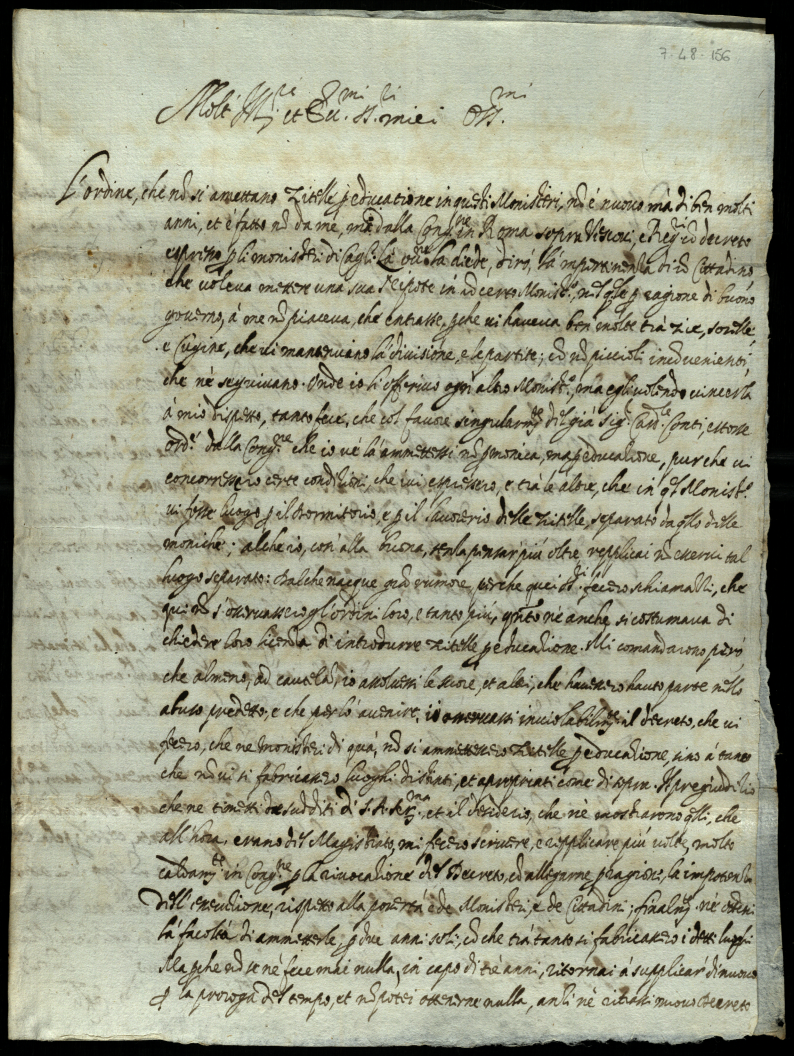 7·48·156
Molt' Ill.re et Ecc.mi SS.ri miei Oss.mi
L'ordine, che nõ si amettano Zitelle p educatione in questi Monisteri, nõ é nuovo má di ben molti
anni, et é fatto nõ da me, má dalla Cong.ne in Roma sopra Vescovi, e Reg.ri cõ decreto
espresso p li monisteri di Cagli. La diede, dirò, la impertinenza di cõ Cittadino
che voleva mettere una sua Neipote in ũ certo Monist.o, nel q̃le p ragione di buono
governo, á me nõ piaceva, che entrasse, pche vi haveva ben molte trà zie, sorelle,
e Cugine, che vi mantenivano la divisione, e le partite; cõ nõ piccioli inconvenienti,
che ne seguivano. Onde io li offerivo ogni altro Monist.o, ma egli volendo vincerla
á mio dispetto, tanto fece, che col favore singularm.te del già Sig.r Card.le Conti, estorse
ord.e dalla Cong.ne che io ve la amettessi nõ p monica, ma p educatione, pur che vi
concorressero certe conditioni, che ivi espressero, e trà le altre, che in q.to Monist.o
vi fosse luogo p il dormitorio, e p il lavorerio delle zitelle, separato da q̃llo delle
moniche; al che io, cosí alla buona, senza pensar' più oltre replicai nõ esservi tal
luogo separato: Dal che nacque grã rumore, perche quei SS.ri fecero schiamazzi, che
qui nõ s'osservassero gl'ordini loro, e tanto più, q̃nto ne anche si costumava di
chiedere loro licenza di introdurre zitelle p educatione. Mi comandarono però
che almeno, ad cautelã, io assolvessi le suore, et altri, che havessero hauto parte nello
abuso predetto, e che per lo avenire, io osservassi inviolabilm.te il decreto, che vi
fecero, che ne monisteri di quá, nõ si ammettessero zitelle p educatione, sino á tanto
che nõ vi si fabricassero luoghi distinti, et apropriati come di sopra. Il pregiuditio
che ne timessi de sudditi di S. A. Ser.ma, et il desiderio, che ne mostrarono q̃lli, che
all'hora, erano del Magistrato, mi fecero scrivere, e replicare più volte, molto
caldam.te in Cong.ne p la rivocatione del Decreto, cõ allegarne p ragione, la impotenza
dell'essecutione, rispetto alla povertà e de Monisteri, e de Cittadini; finalm.te ne ottenni
la facoltà di ammetterle, p due anni soli, cõ che trà tanto si fabricassero i detti luoghi
Ma pche nõ se ne fece mai nulla, in capo di tré anni, ritornai á supplicar' di nuovo
p la proroga del tempo, et nõ potei ottenerne nulla, anzi ne ritrassi nuovo Decreto